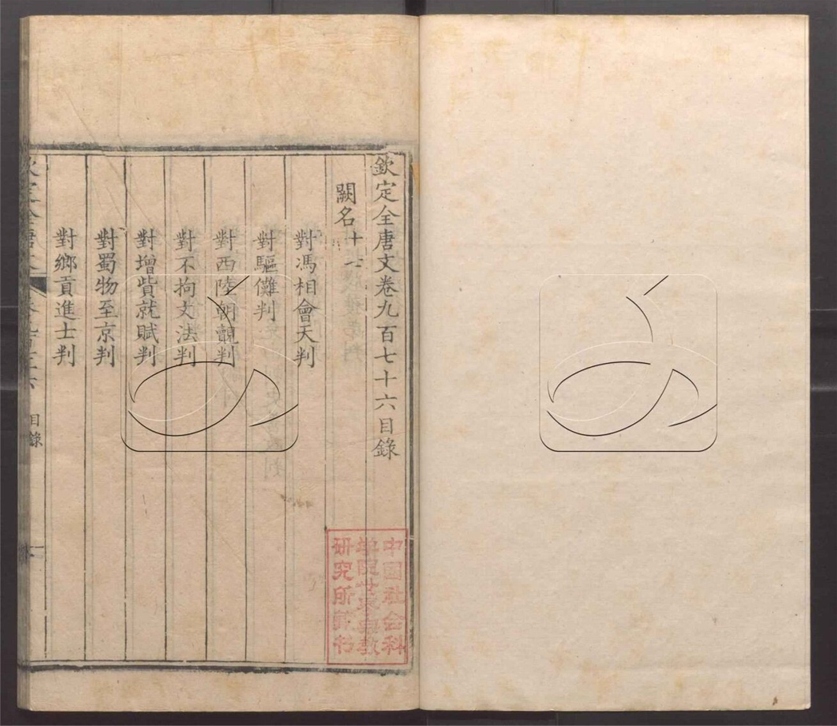 欽定全唐文卷九百七十六目錄
闕名十七
對馮相會天判
對驅儺判
對西陸朝覿判
對不拘文法判
對增貲就賦判
對蜀物至京判
對鄉貢進士判
欽定全唐文
目錄
中國社会科
學院世界宗教
研究所藏书